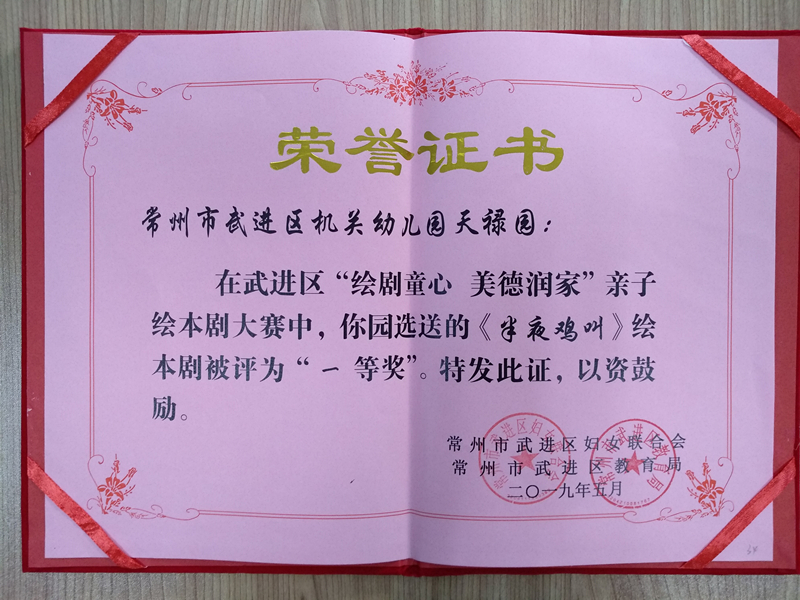 荣誉证书
常州市武进区机关幼儿园天禄园：
在武进区“绘剧童心 美德润家”亲子
绘本剧大赛中，你园选送的《半夜鸡叫》绘
本剧被评为“一等奖”。特发此证，以资鼓
励。
常州市武进区妇女联合会
常州市武进区教育局
二〇一九年五月